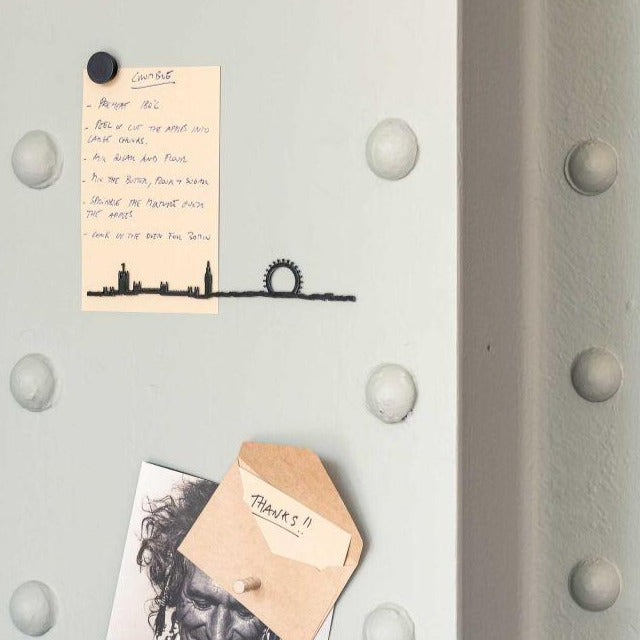 CRUMBLE
- PREHEAT 180°C
- PEEL & CUT THE APPLES INTO
LARGE CHUNKS.
- MIX SUGAR AND FLOUR
- MIX THE BUTTER, FLOUR & SUGAR
- SPRINKLE THE MIXTURE OVER
THE APPLES
- COOK IN THE OVEN FOR 30MIN
THANKS!!